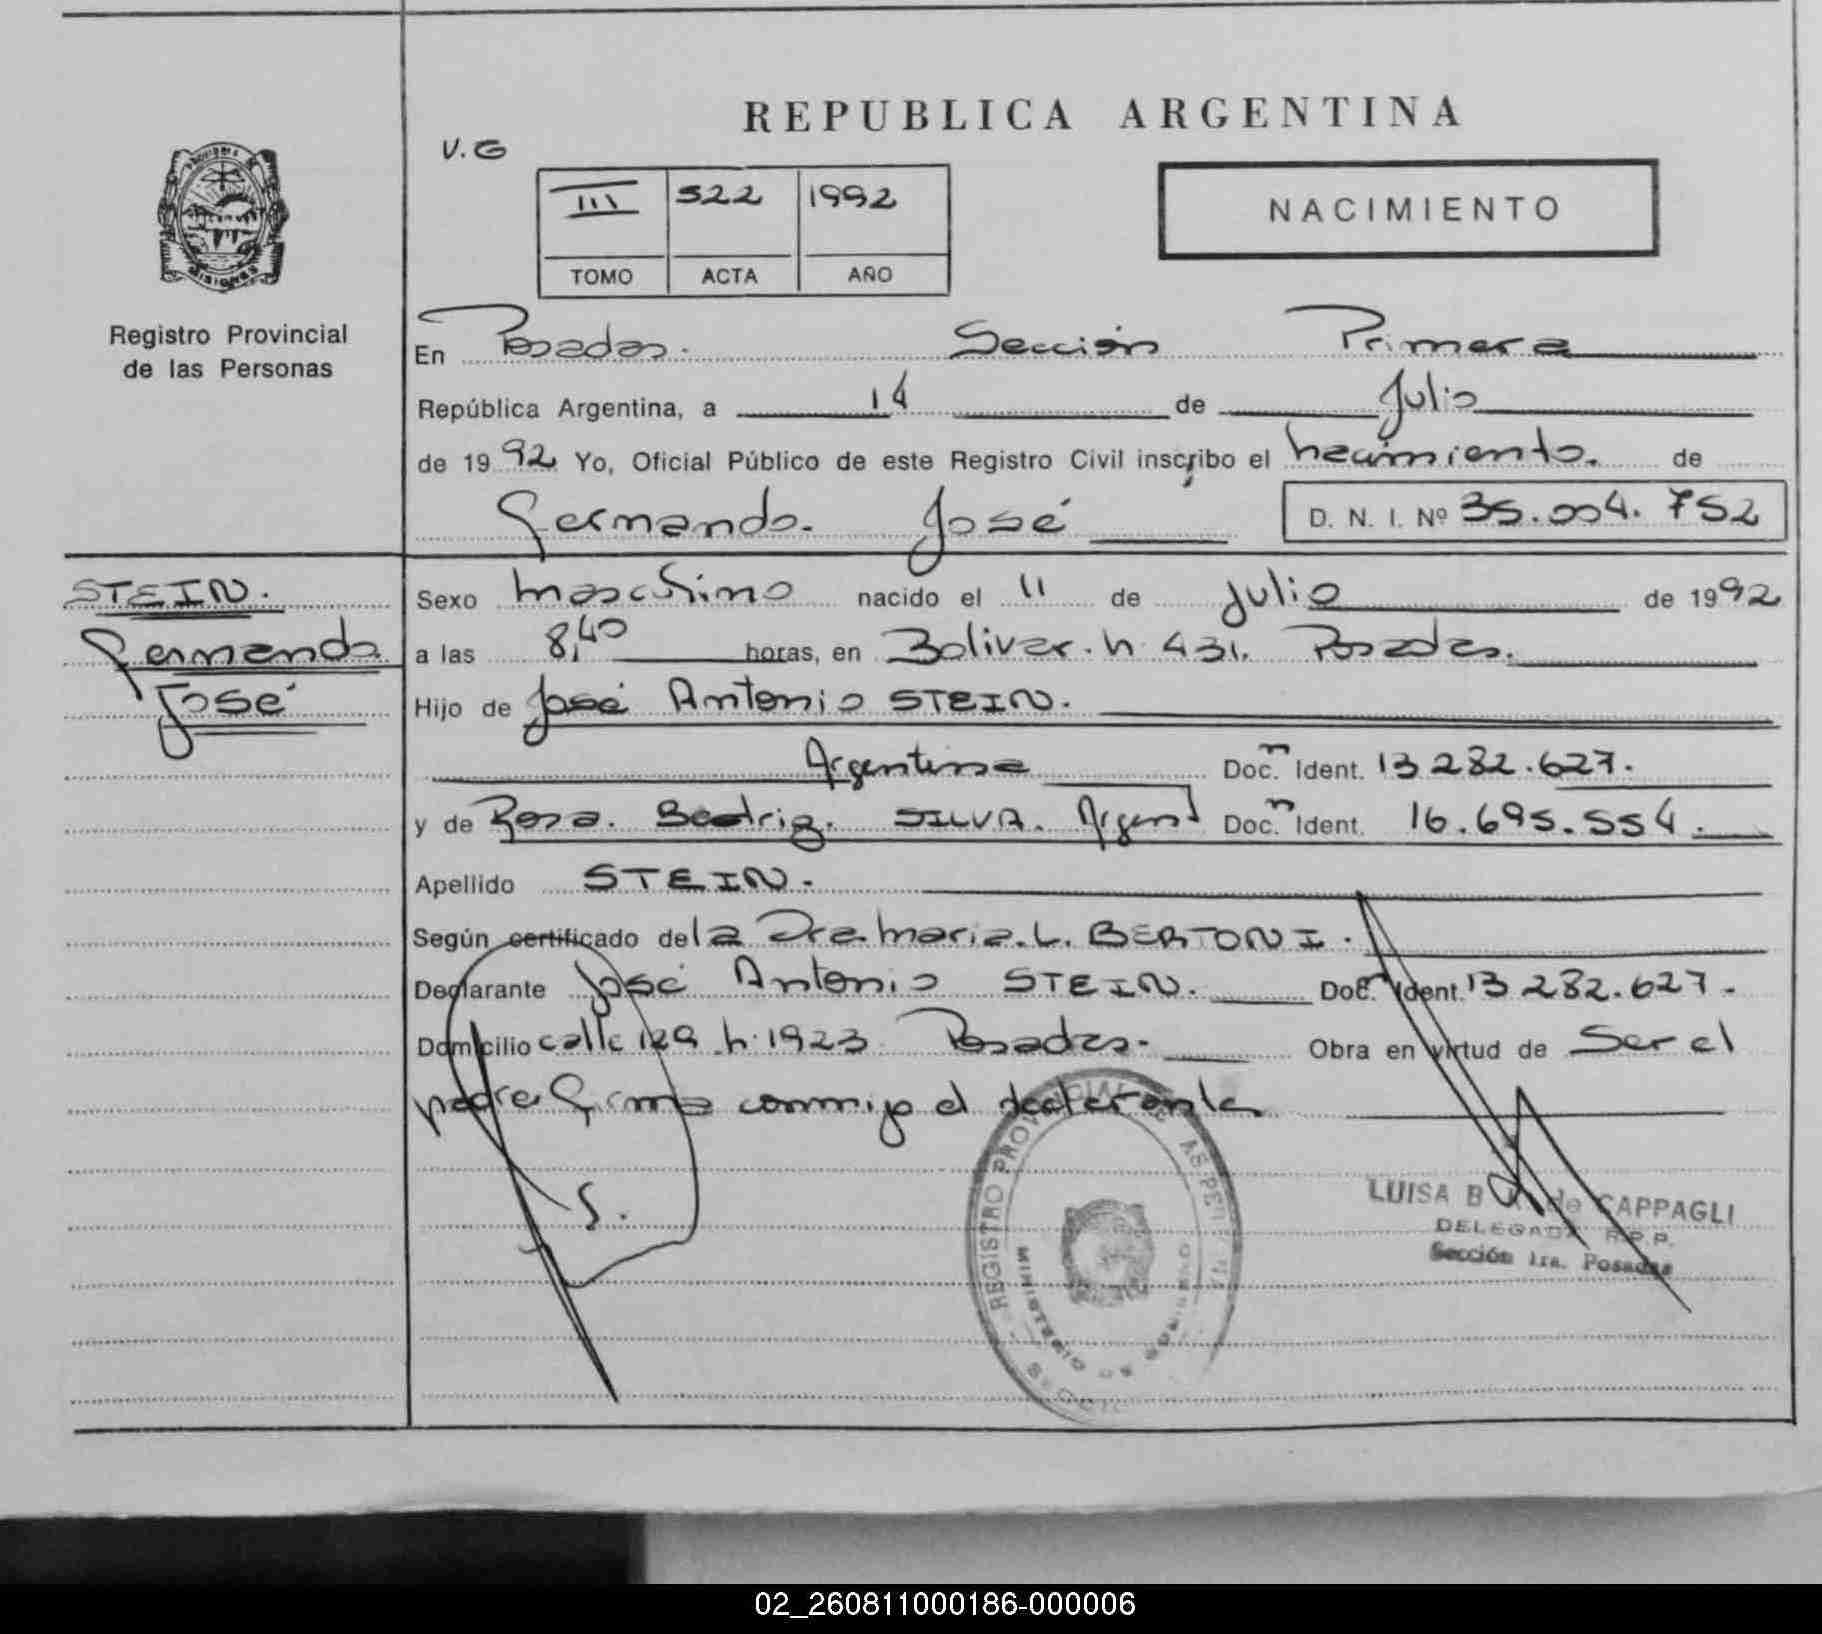 REPUBLICA ARGENTINA
V.G
III 522 1992
TOMO ACTA AÑO
NACIMIENTO
Registro Provincial
de las Personas
En Posadas. Sección Primera
República Argentina, a 14 de Julio
de 1992 Yo, Oficial Público de este Registro Civil inscribo el nacimiento. de
Fernando. José D. N. I. Nº 35.004.752
STEIN.
Fernando
José
Sexo masculino nacido el 11 de Julio de 1992
a las 8,40 horas, en Bolivar. n. 431. Posadas.
Hijo de José Antonio STEIN.
Argentina Doc. Ident. 13 282.627.
y de Rosa. Beatriz. SILVA. Argent Doc. Ident. 16.695.554.
Apellido STEIN.
Según certificado de la Dra. Maria. L. BERTONI.
Declarante José Antonio STEIN. Doc. Ident. 13 282.627.
Domicilio calle 129 n. 1923 Posadas. Obra en virtud de Ser el
padre Firma conmigo el declarante
S.
REGISTRO PROVINCIAL DE LAS PERSONAS
MINISTERIO DE GOBIERNO
LUISA B de CAPPAGLI
DELEGADA R.P.P.
Sección 1ra. Posadas
02_260811000186-000006